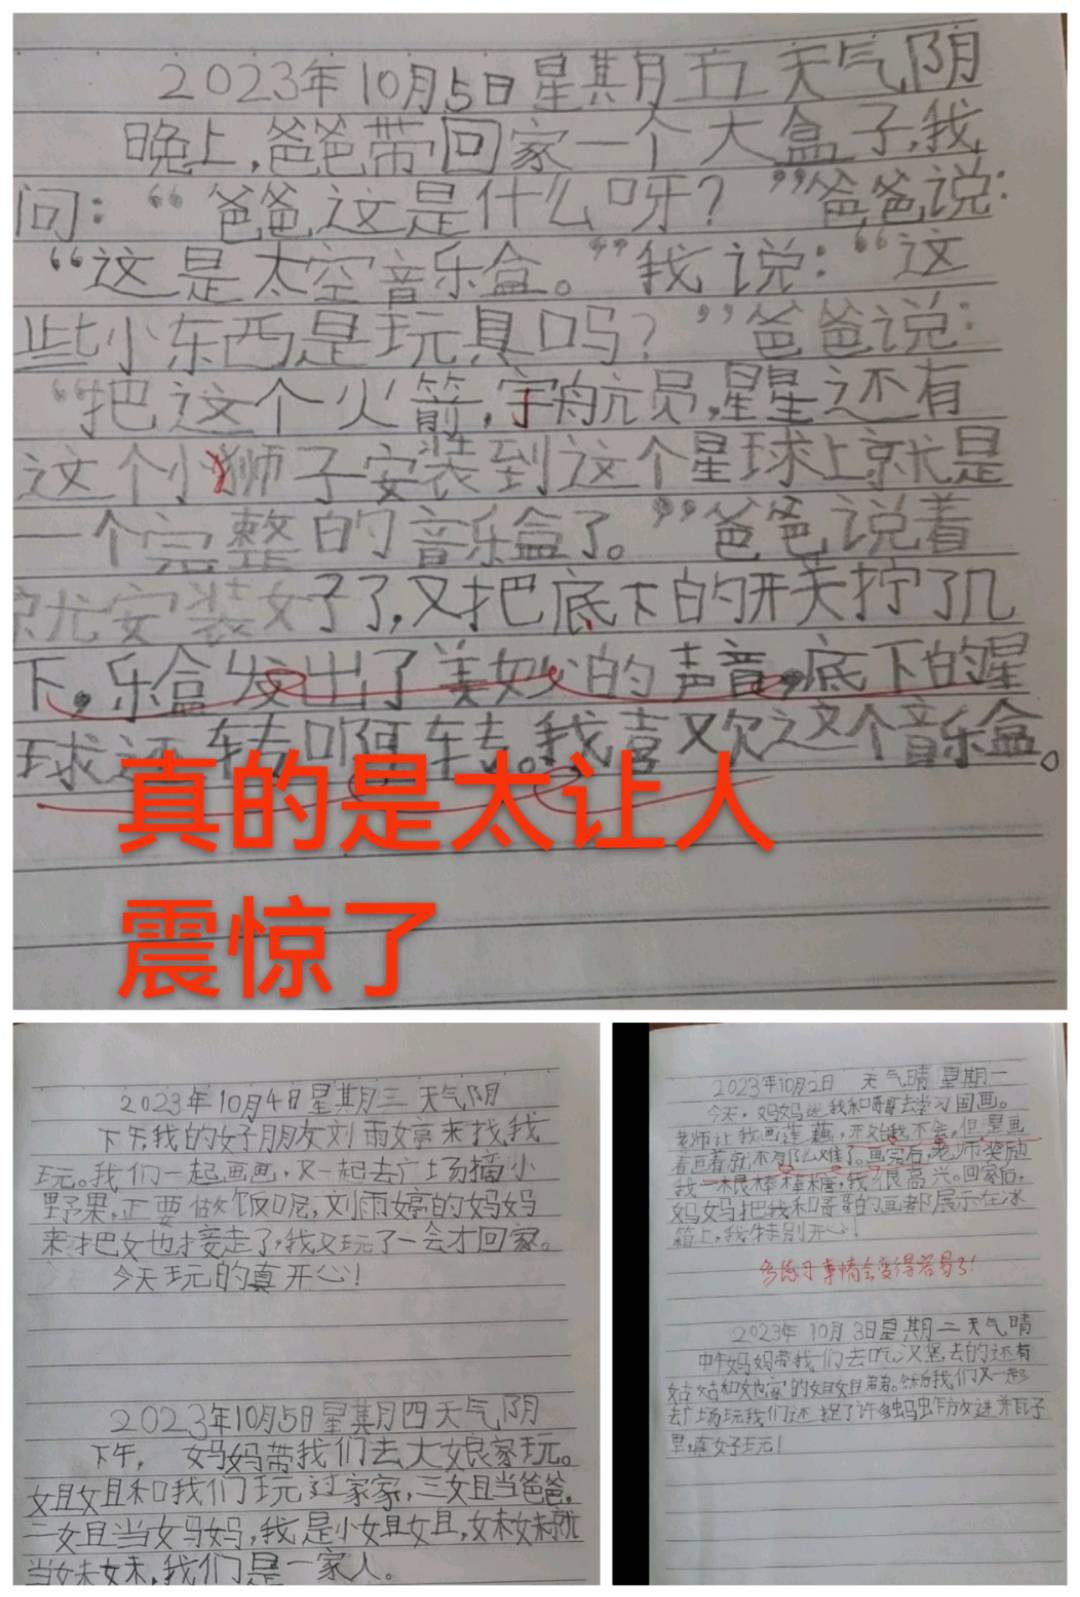 2023年10月5日星期五天气阴
晚上,爸爸带回家一个大盒子,我
问:“爸爸这是什么呀?”爸爸说:
“这是太空音乐盒。”我说:“这
些小东西是玩具吗?”爸爸说:
“把这个火箭,宇航员,星星还有
这个小狮子安装到这个星球上就是
一个完整的音乐盒了。”爸爸说着
就安装好了,又把底下的开关拧了几
下,乐盒发出了美妙的声音,底下的星
球还转啊转。我喜欢这个音乐盒。
真的是太让人
震惊了
2023年10月4日星期三天气阴
下午,我的好朋友刘雨婷来找我
玩。我们一起画画,又一起去广场摘小
野果,正要做饭呢,刘雨婷的妈妈
来把她接走了,我又玩了一会才回家。
今天玩的真开心!
2023年10月5日星期四天气阴
下午,妈妈带我们去大娘家玩。
姐姐和我们玩过家家,三姐当爸爸,
二姐当妈妈,我是小姐姐,妹妹就
当妹妹,我们是一家人。
2023年10月2日 天气晴 星期一
今天,妈妈送我和哥哥去学习国画。
老师让我画莲藕,开始我不会,但是画
着画着就不那么难了。画完后,老师奖励
我一根棒棒糖,我很高兴。回家后,
妈妈把我和哥哥的画都展示在冰
箱上,我特别开心!
多练习事情会变得容易了!
2023年10月3日星期二天气晴
中午妈妈带我们去吃汉堡,去的还有
姑姑和她家的姐姐君君。然后我们又一起
去广场玩我们还捉了许多蚂虫乍放进井瓦子
里,真好玩!